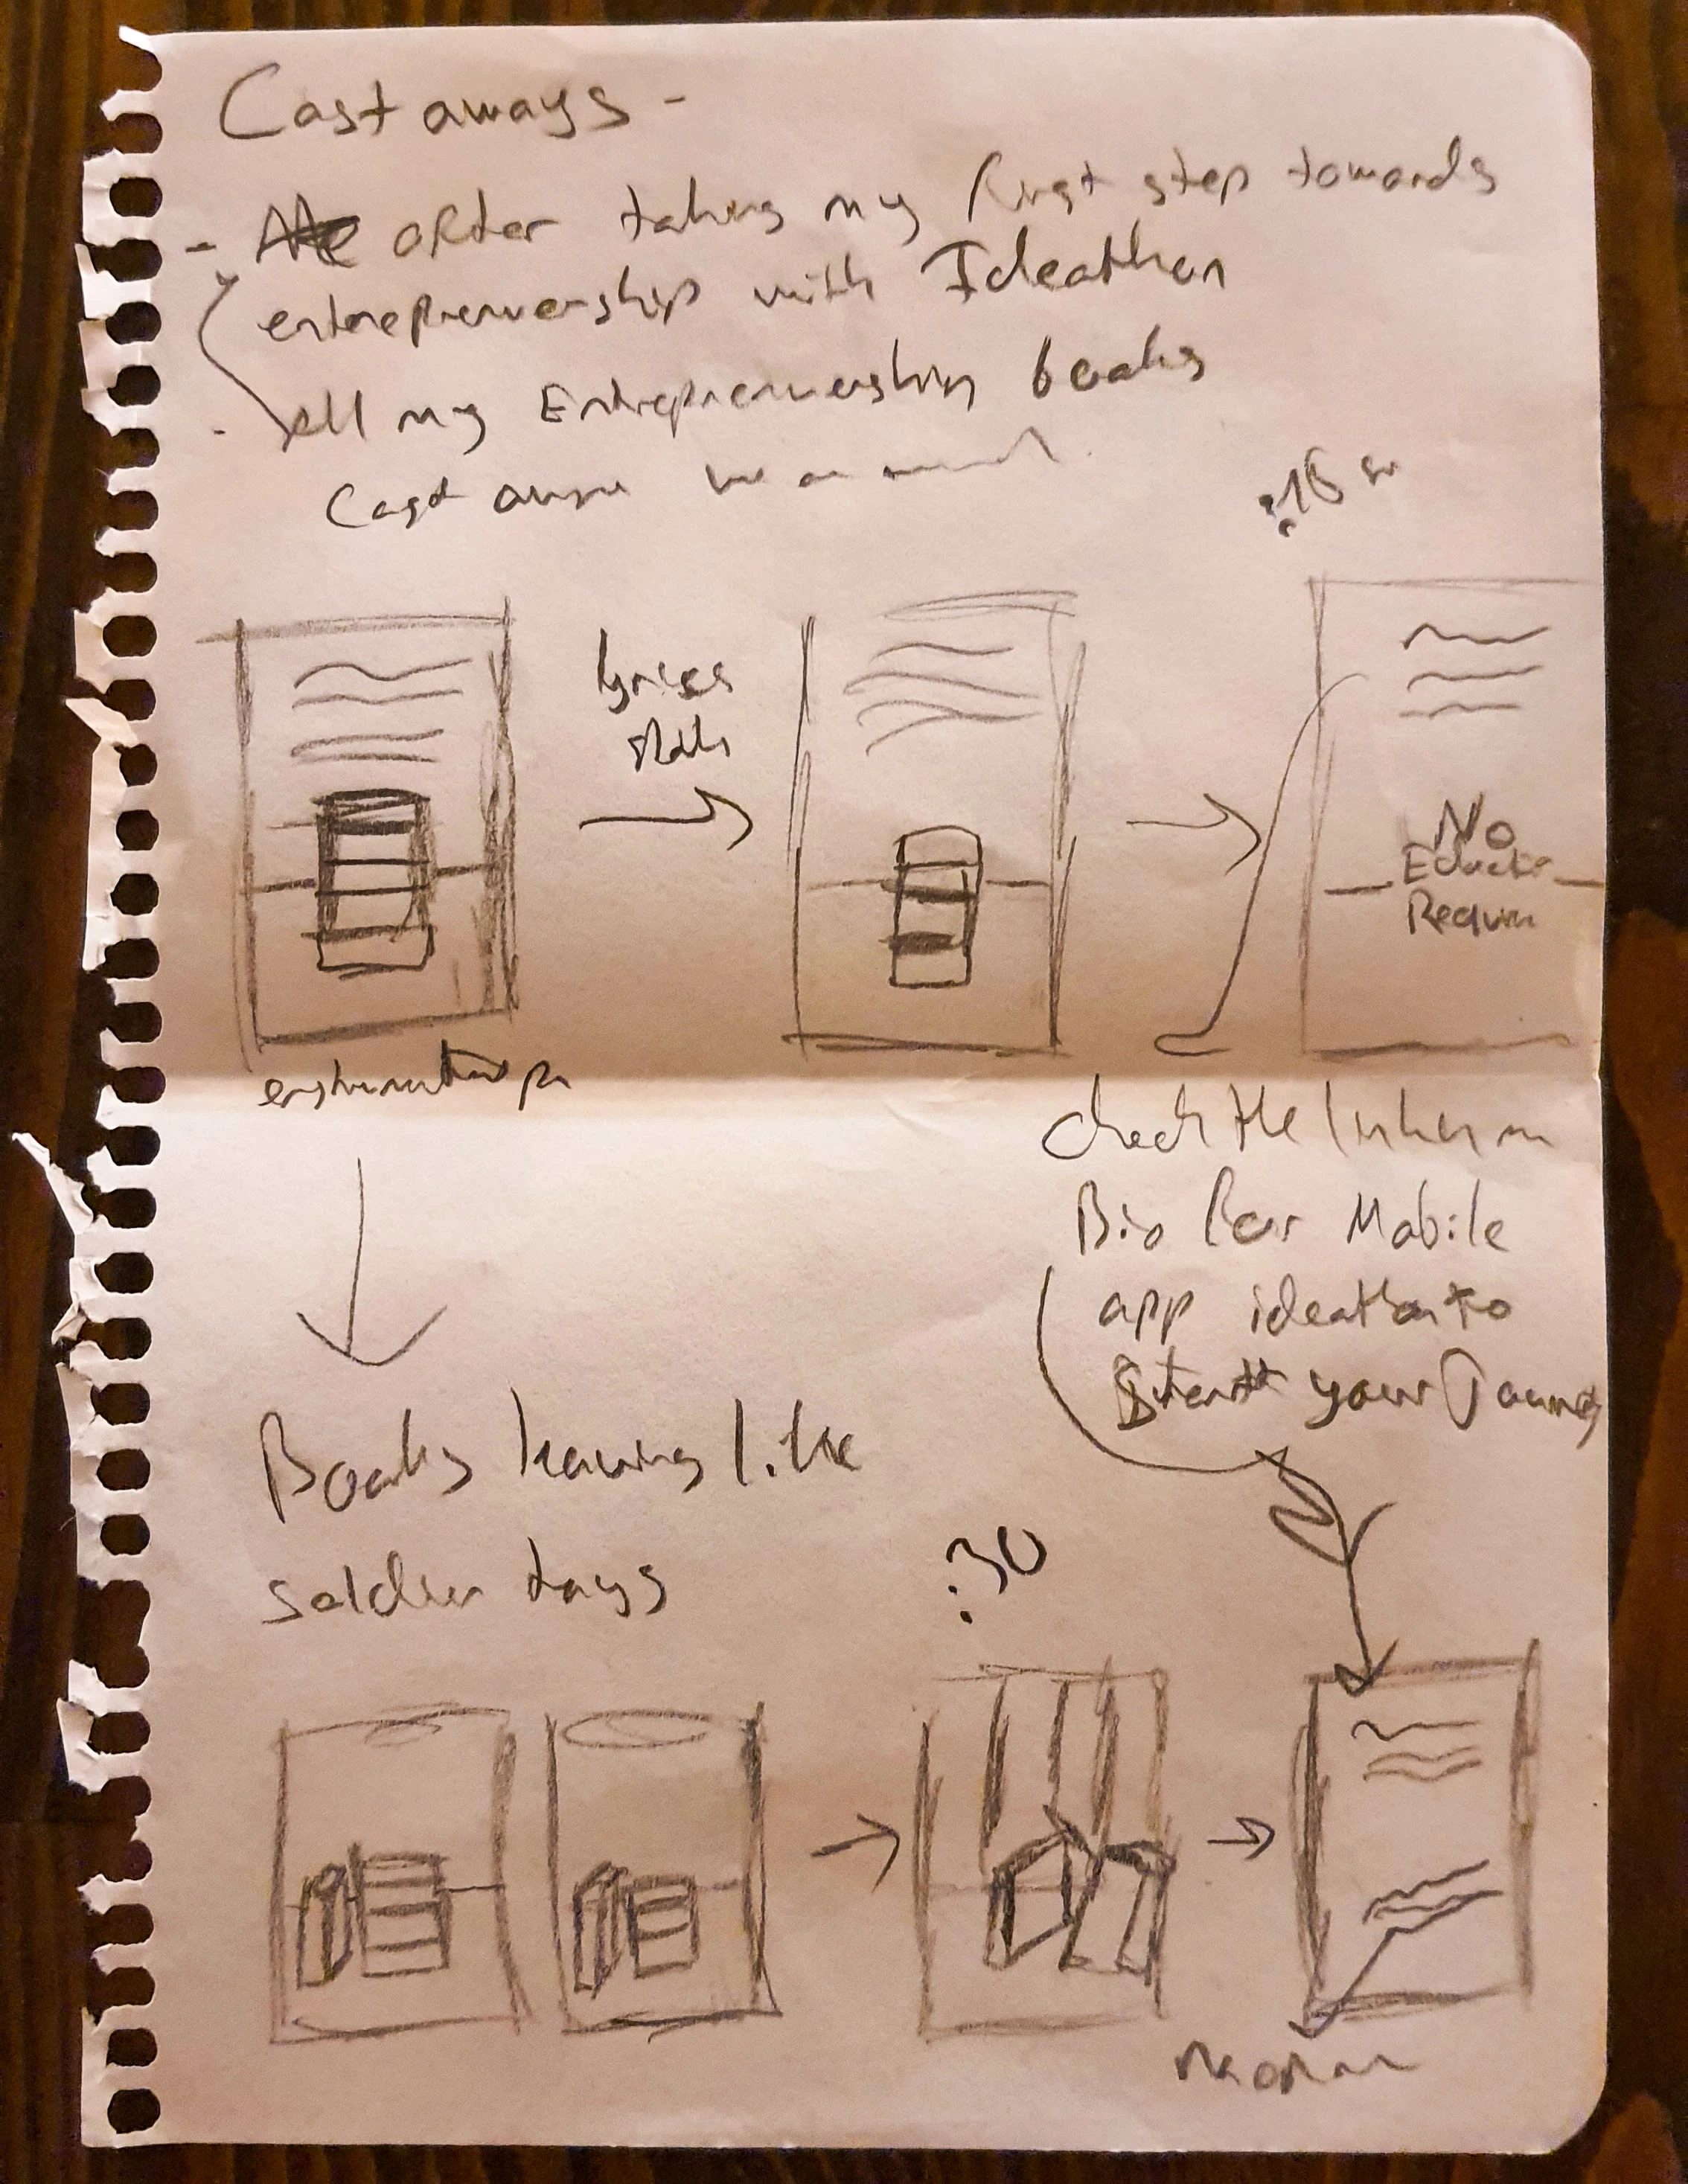 Castaways -
- after taking my first step towards
entrepreneurship with Ideathon
- all my Entrepreneurship books
Cast
:15
lyrics
start
No
Required
check the link in
Bio for Mobile
app ideathon to
Start your Journey
Books leaving like
soldier toys
:30